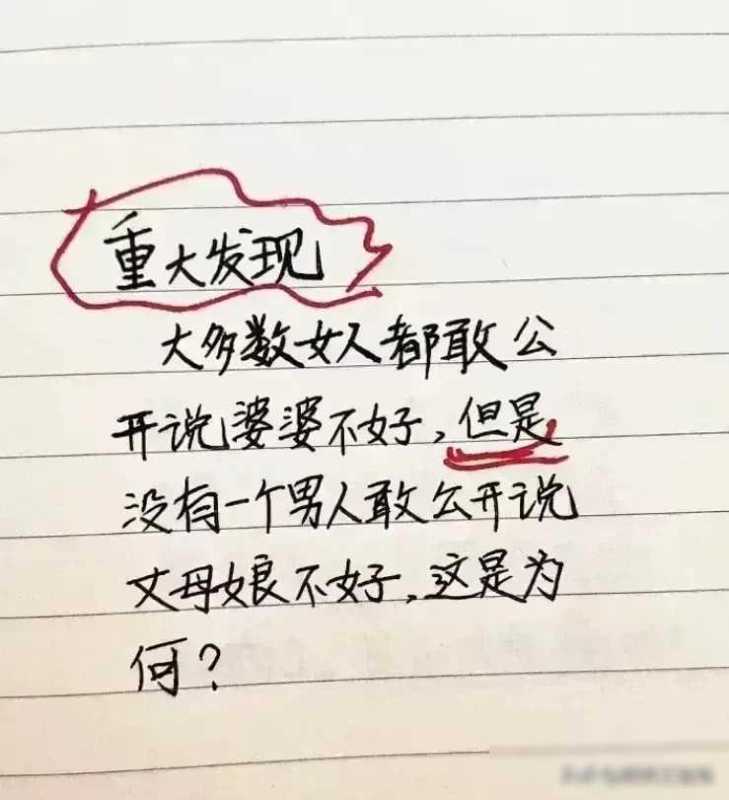 重大发现
大多数女人都敢公
开说婆婆不好，但是
没有一个男人敢公开说
丈母娘不好，这是为
何？